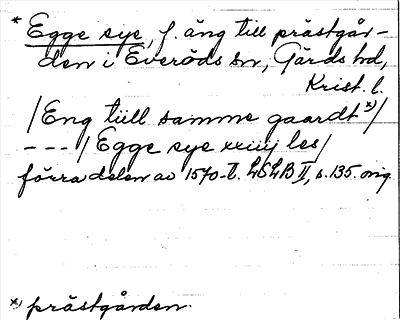 * Egge sye, f. äng till prästgår-
den i Everöds sn, Gärds hd,
Krist. l.
/Eng tiill samme gaardt x)/
--- /Egge sye xiiij les/
förra delen av 1570-t. LSLB II, s. 135. orig.
x) prästgården.